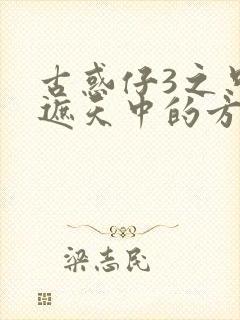 古惑仔3之只
遮天中的方
梁志民